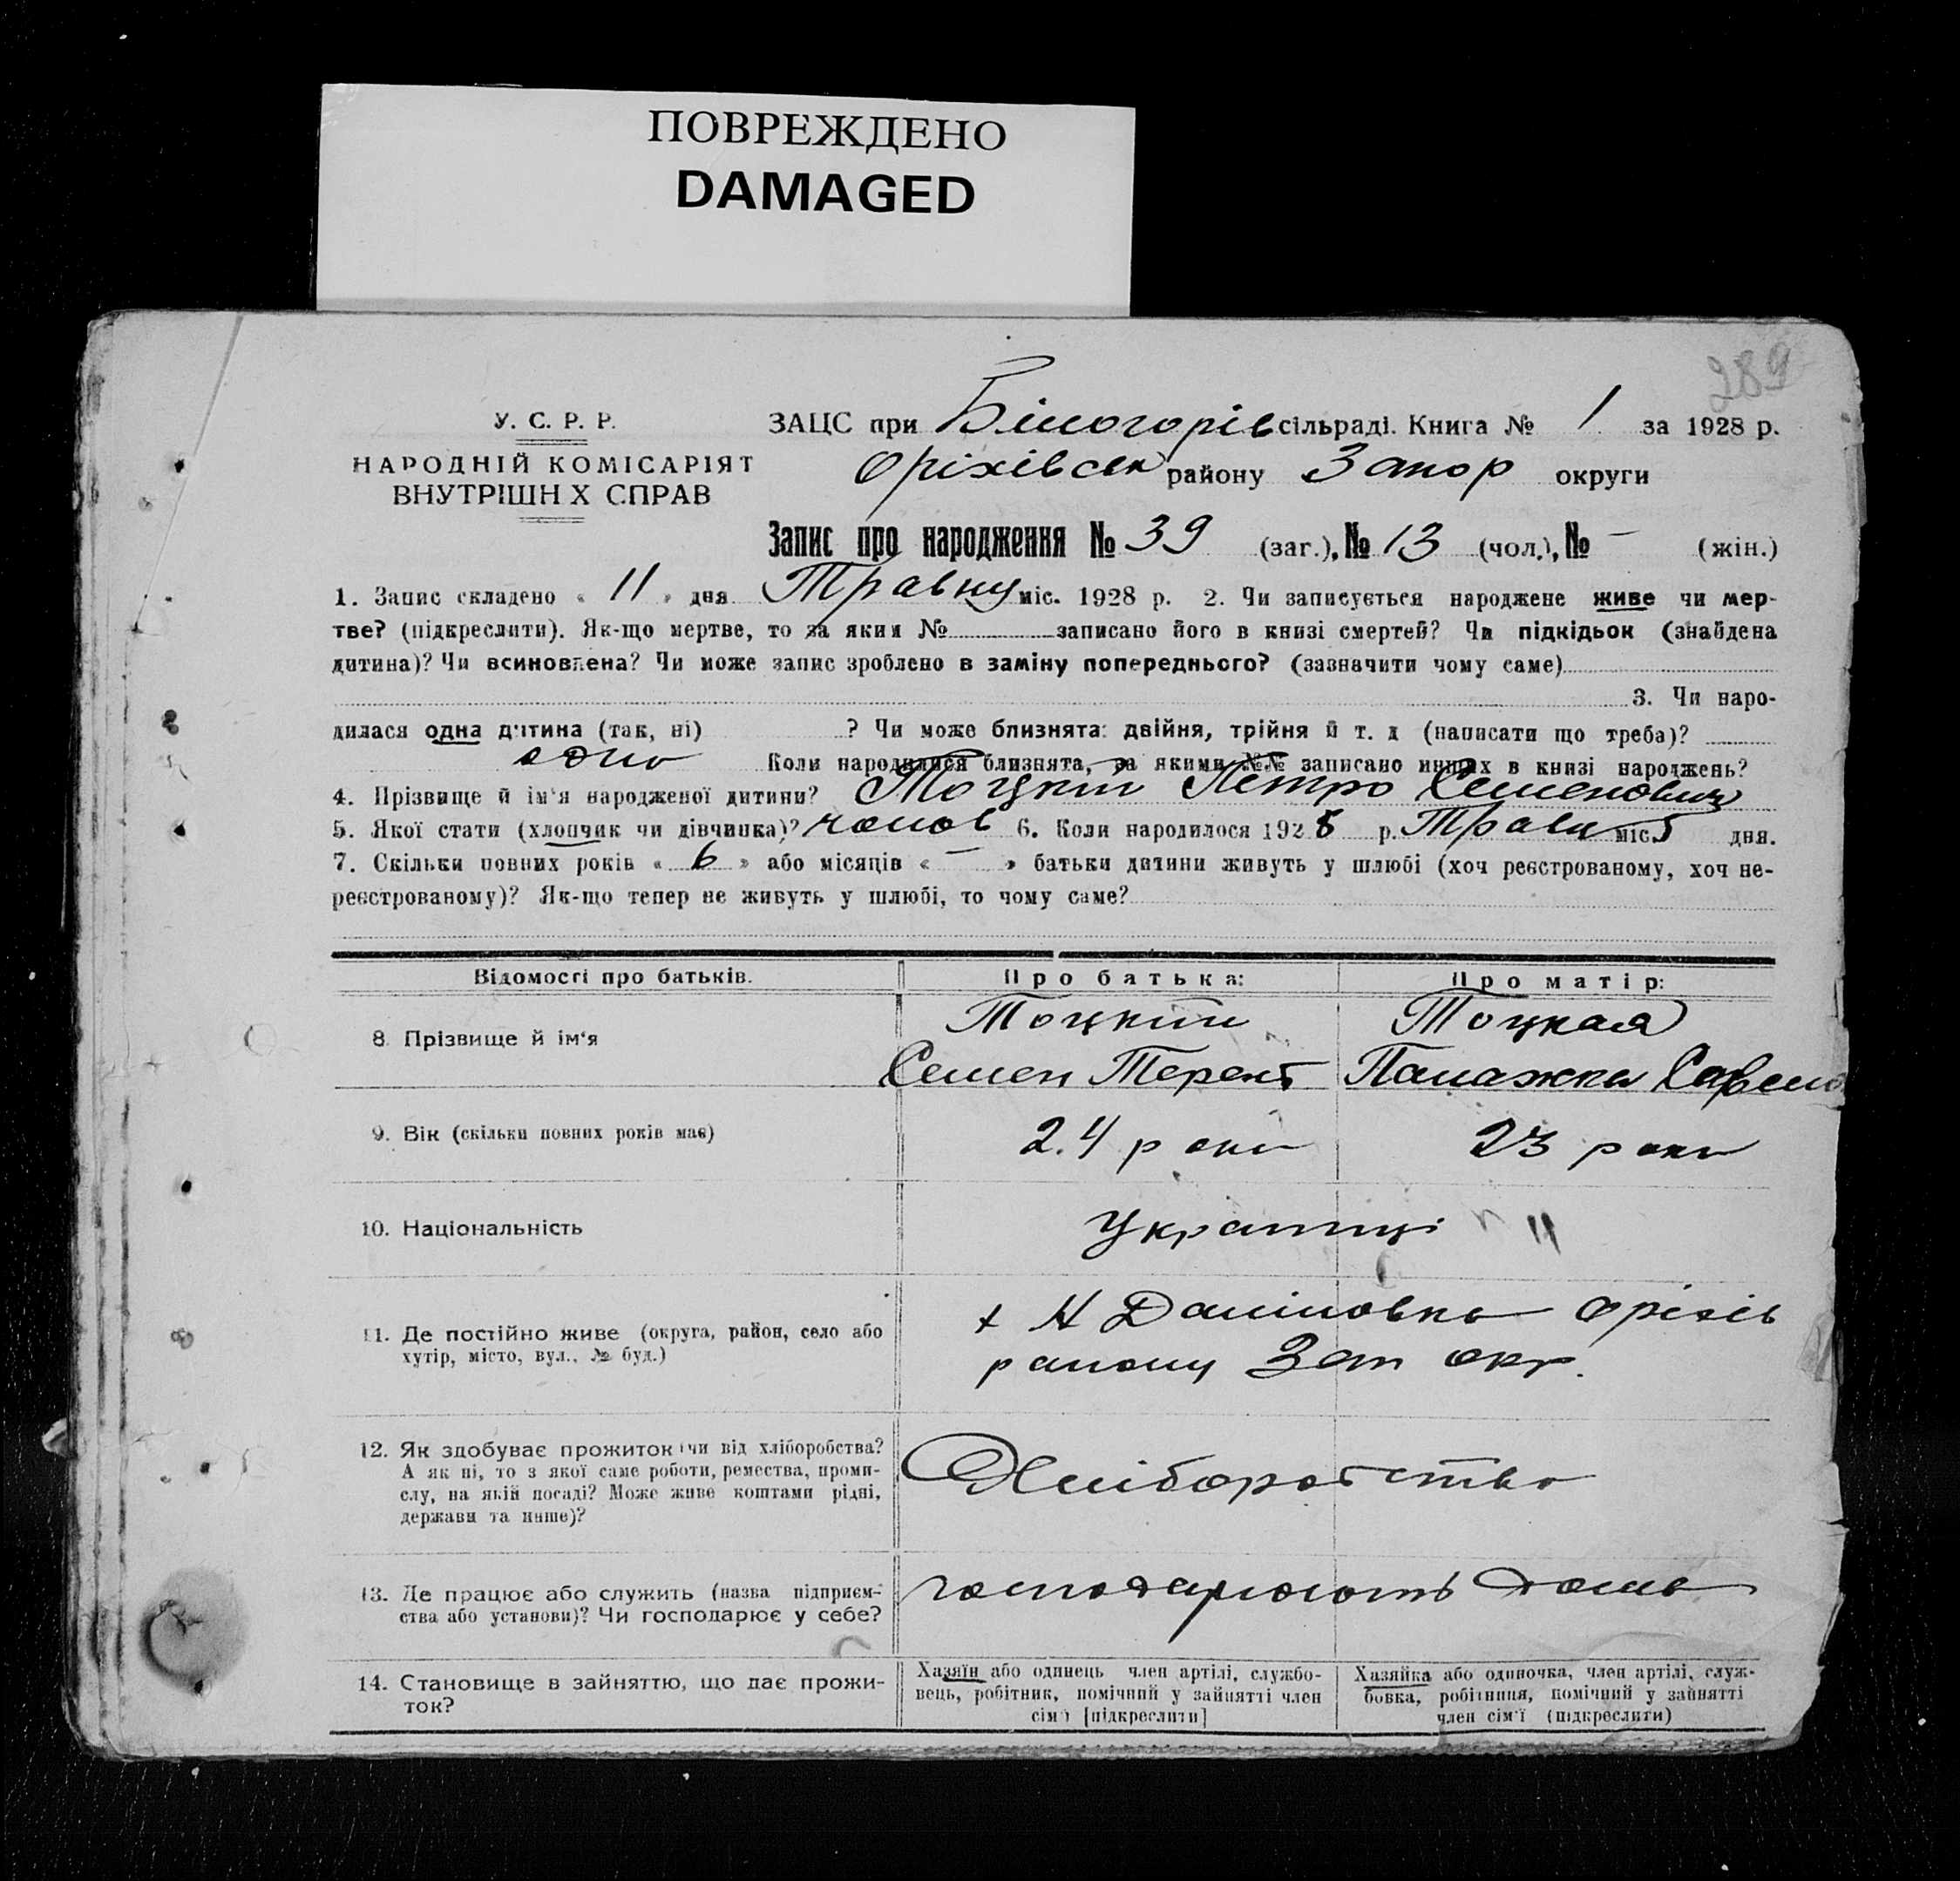 ПОВРЕЖДЕНО
DAMAGED
289
У. С. Р. Р.
НАРОДНІЙ КОМІСАРІЯТ
ВНУТРІШН Х СПРАВ
ЗАЦС при Білогорів сільраді. Книга № 1 за 1928 р.
Оріхівськ району Запор округи
Запис про народження № 39 (заг.), № 13 (чол.), № - (жін.)
1. Запис складено « 11 » дня Травну міс. 1928 р. 2. Чи записується народжене живе чи мер-
тве? (підкреслити). Як-що мертве, то за яким № записано його в книзі смертей? Чи підкідьок (знайдена
дитина)? Чи всиновлена? Чи може запис зроблено в заміну попереднього? (зазначити чому саме)
3. Чи наро-
дилася одна дитина (так, ні) ? Чи може близнята: двійня, трійня й т. д (написати що треба)?
одно Коли народилися близнята, за якими №№ записано инших в книзі народжень?
4. Прізвище й ім'я народженої дитини? Тоцкий Петро Семенович
5. Якої стати (хлопчик чи дівчинка)? чолов 6. Коли народилося 1928 р. Травн міс. 5 дня.
7. Скільки повних років « 6 » або місяців « - » батьки дитини живуть у шлюбі (хоч реєстрованому, хоч не-
реєстрованому)? Як-що тепер не живуть у шлюбі, то чому саме?
Відомості про батьків. Про батька: Про матір:
8. Прізвище й ім'я Тоцкий Тоцкая
Семен Терент Палажка Савело
9. Вік (скільки повних років має) 24 роки 23 роки
10. Національність Українці "
11. Де постійно живе (округа, район, село або х Н Даніловка Оріхів
хутір, місто, вул., № буд.) району Зап окр.
12. Як здобуває прожиток (чи від хліборобства? Хліборобство
А як ні, то з якої саме роботи, ремества, проми-
слу, на якій посаді? Може живе коштами рідні,
держави та инше)?
13. Де працює або служить (назва підприєм- господарюють дома
ства або установи)? Чи господарює у себе?
14. Становище в зайняттю, що дає прожи- Хазяїн або одинець член артілі, службо- Хазяйка або одиночка, член артілі, служ-
ток? вець, робітник, помічний у зайнятті член бовка, робітниця, помічний у зайнятті
сім'ї [підкреслити] член сім'ї (підкреслити)